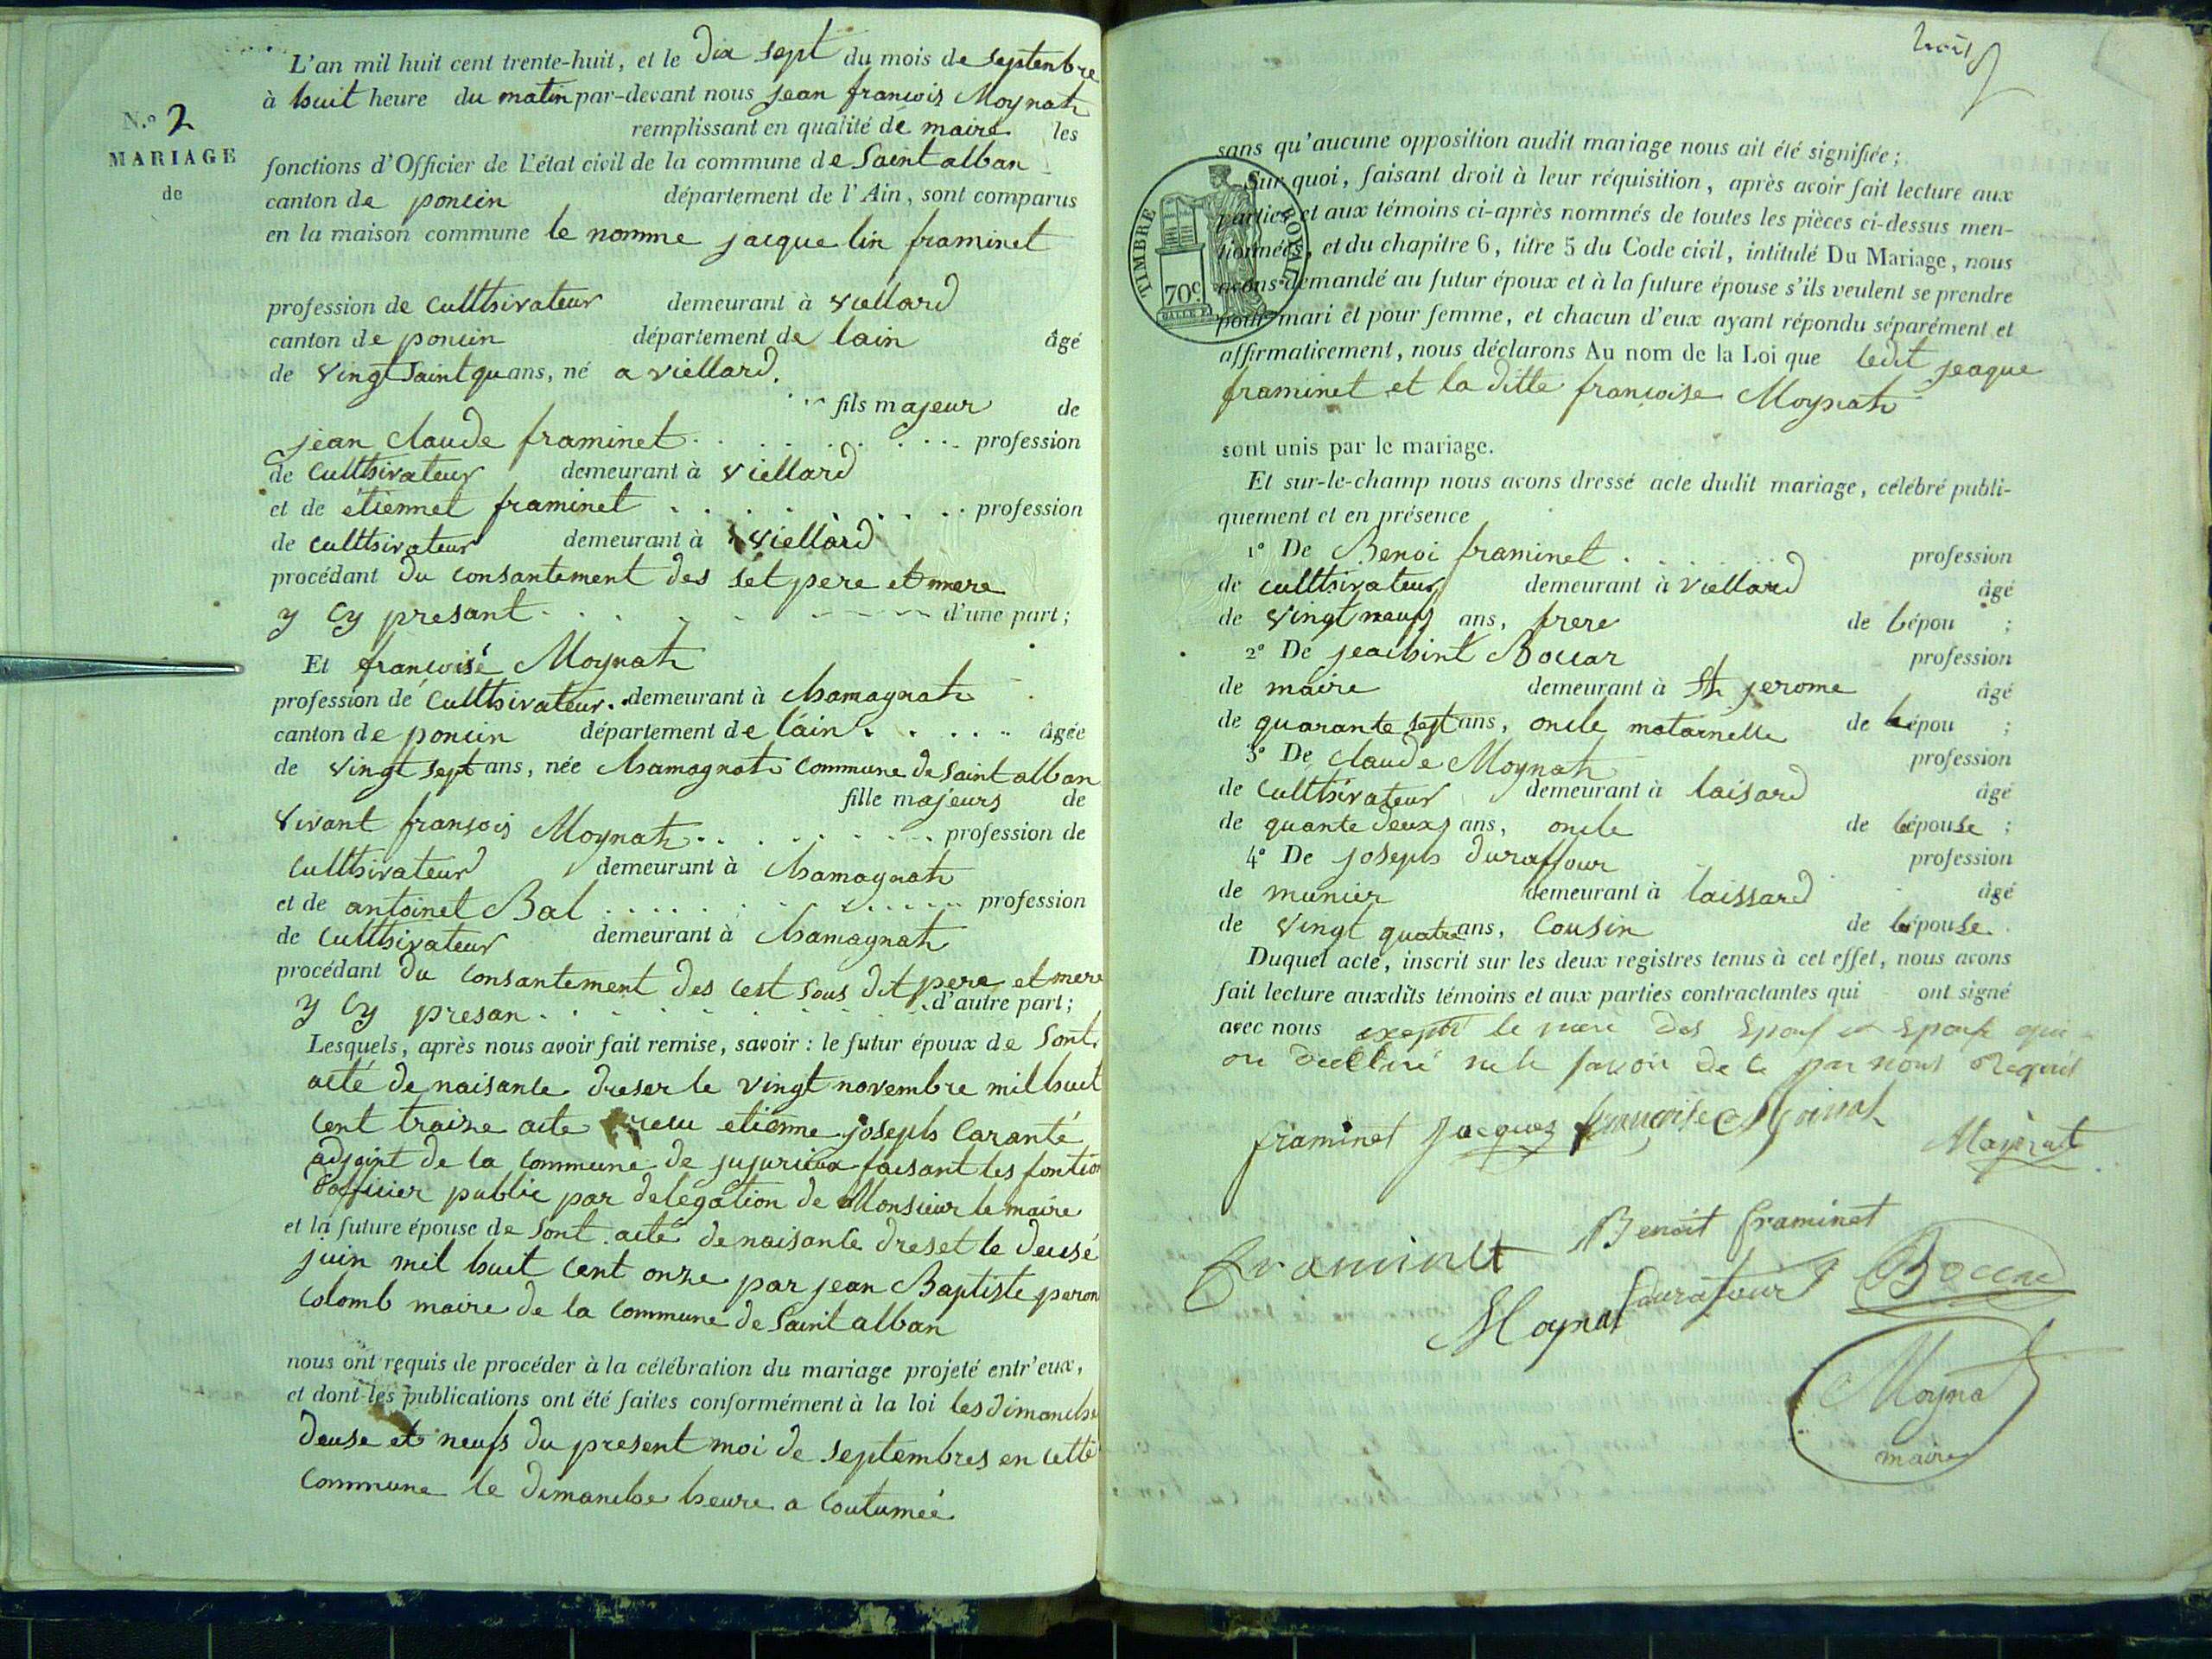 L'an mil huit cent trente-huit, et le dix sept du mois de septenbre
à huit heure du matin par-devant nous jean francois Moynat
remplissant en qualité de maire les
N.º 2
MARIAGE
de
fonctions d'Officier de l'état civil de la commune de Saint alban
canton de poncin département de l'Ain, sont comparus
en la maison commune le nomme jacque lin framinet
profession de cultthivateur demeurant à viellard
canton de poncin département de lain âgé
de vingt saintqu ans, né a viellard.
fils majeur de
jean claude framinet profession
de culthivateur demeurant à viellard
et de étiennet framinet profession
de culthivateur demeurant à viellard
procédant du consantement des set pere et mere
y cy presant d'une part;
Et francoise Moynat
profession de culthivateur demeurant à chamagnat
canton de poncin département de lain âgée
de vingt sept ans, née chamagnat commune de saint alban
fille majeurs de
vivant françois Moynat profession de
culthivateur demeurant à chamagnat
et de antoinet Bal profession
de culthivateur demeurant à chamagnat
procédant du consantement des cest sous dit pere et mere
y cy presan d'autre part;
Lesquels, après nous avoir fait remise, savoir : le futur époux de sont
acté de naisante dreser le vingt novembre mil huit
cent traize acte recu etienne joseph Caranté
adjoint de la commune de jujurieux faisant les fontion
d'officier public par delegation de Monsieur le maire
et la future épouse de sont acté de naisante dreset le deusé
juin mil huit cent onze par jean Baptiste peron
colomb maire de la commune de Saint alban
nous ont requis de procéder à la célébration du mariage projeté entr'eux,
et dont les publications ont été faites conformément à la loi les dimanche
deuse et neufs du present moi de septembres en cette
commune le dimanche heure a coutumée
trois
sans qu'aucune opposition audit mariage nous ait été signifiée;
Sur quoi, faisant droit à leur réquisition, après avoir fait lecture aux
parties et aux témoins ci-après nommés de toutes les pièces ci-dessus men-
tionnées, et du chapitre 6, titre 5 du Code civil, intitulé Du Mariage, nous
avons demandé au futur époux et à la future épouse s'ils veulent se prendre
pour mari et pour femme, et chacun d'eux ayant répondu séparément et
affirmativement, nous déclarons Au nom de la Loi que ledit jeaque
framinet et la ditte francoise Moynat
TIMBRE ROYAL
70c
sont unis par le mariage.
Et sur-le-champ nous avons dressé acte dudit mariage, célébré publi-
quement et en présence
1º De Benoi framinet profession
de culthivateur demeurant à viellard âgé
de vingt neufs ans, frere de lépou ;
2º De jeachint Bocar profession
de maire demeurant à St jerome âgé
de quarante sept ans, oncle matarnelle de lépou ;
3º De claude Moynat profession
de culthivateur demeurant à laisard âgé
de quante deuxs ans, oncle de lépouse ;
4º De joseph duraffour profession
de munier demeurant à laissard âgé
de vingt quatre ans, cousin de lépouse.
Duquel acte, inscrit sur les deux registres tenus à cet effet, nous avons
fait lecture auxdits témoins et aux parties contractantes qui ont signé
avec nous excepté le mere des Epouf et Epoufe qui
on declaré ne le savoir de ce par nous Requit
framinet jacques françoise Moinat Maynat
Benoit framinet
framinet
Moynat duraffour Bocar
Moynat
maire